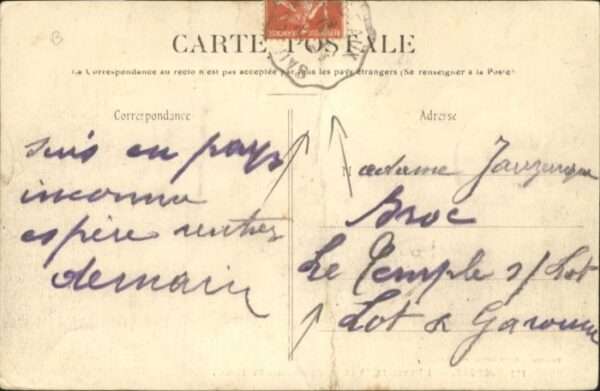 B
CARTE POSTALE
La Correspondance au recto n'est pas acceptée par tous les pays étrangers (Se renseigner à la Poste)
Correspondance
Adresse
suis en pays
inconnu
espère rentrer
demain
Madame
Broc
Le Temple s/ Lot
Lot & Garonne